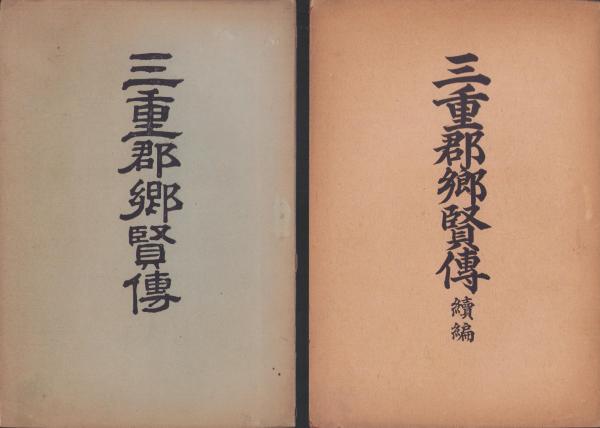 三重郡郷賢傳
三重郡郷賢傳
續編